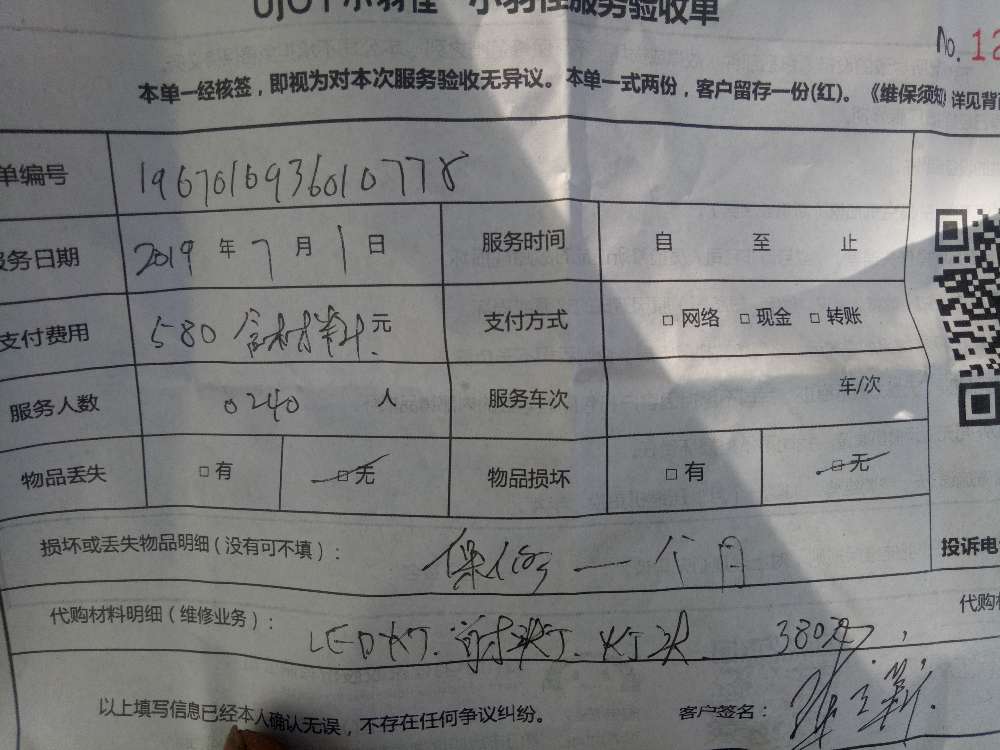 小羽佳 小羽佳服务验收单
No. 12
本单一经核签，即视为对本次服务验收无异议。本单一式两份，客户留存一份(红)。《维保须知》详见背面
单编号 1967016936010778
服务日期 2019 年 7 月 1 日 服务时间 自 至 止
支付费用 580 含材料. 元 支付方式 □ 网络 □ 现金 □ 转账
服务人数 0240 人 服务车次 车/次
物品丢失 □ 有 □ 无 物品损坏 □ 有 □ 无
损坏或丢失物品明细（没有可不填）： 保修一个月
投诉电
代购材料明细（维修业务）： LED灯. 射灯. 灯头. 380元,
代购
以上填写信息已经本人确认无误，不存在任何争议纠纷。 客户签名：